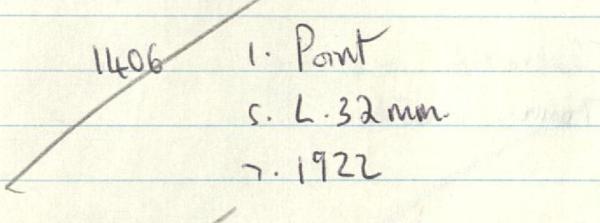 1406 1. Point
5. L. 32mm.
7. 1922